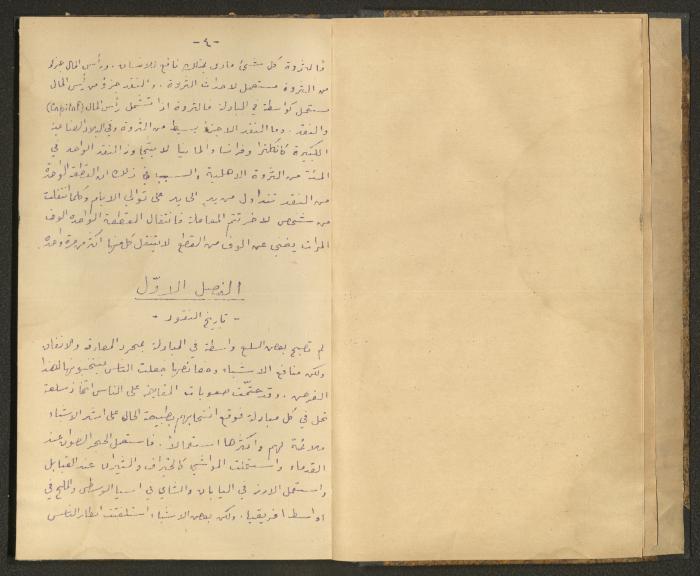 - ٤ -
فالثروة كل شيء مادي نافع للانسان. ورأس المال جزء
من الثروة مستعمل لاحداث الثروة. والنقد جزؤ من رأس المال
مستعمل كواسطة في المبادلة فالثروة اذاً تشمل رأس المال (Capital)
والنقد. وما النقد الا جزؤ بسيط من الثروة وفي البلاد الصناعية
الكبيرة كانكلترا وفرنسا والمانيا لا يتجاوز النقد الواحد في
المئة من الثروة الاهلية والسبب في ذلك ان القطعة الواحدة
من النقد تتداول من يد الى يد على توالي الايام وكلما انتقلت
من شخص لآخر تتم المعاملة فانتقال القطعة الواحدة الوف
المرات يغني عن الوف من القطع لا يتنقل كل منها اكثر من مرة واحدة
الفصل الاوّل
- تاريخ النقود -
لم تصبح بعض السلع واسطة في المبادلة بمجرد المصادفة والاتفاق
ولكن منافع الاشياء وخصائصها جعلت الناس ينتخبونها لهذا
الغرض. وقد حتّمت صعوبات المقايضة على الناس اتخاذ سلعة
تدخل في كل مبادلة فوقع انتخابهم بطبيعة الحال على اشد الاشياء
ملائمة لهم واكثرها استعمالاً. فاستعمل الحجر الصوان عند
القدماء واستعملت المواشي كالخراف والثيران عند القبايل
واستعمل الارز في اليابان والشاي في اسيا الوسطى والملح في
اواسط افريقيا. ولكن بعض الاشياء استلفتت انظار الناس